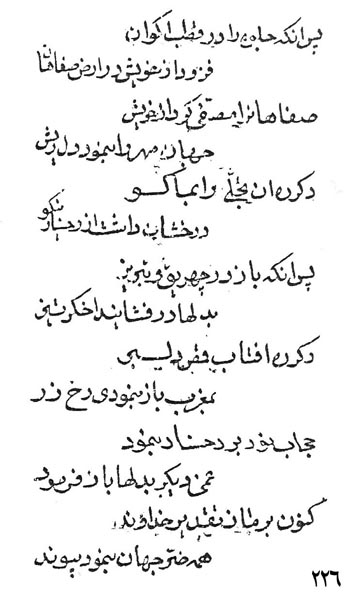 پس انکه جای را در قطب اکوان
فزود از خویش در ارض صفاهان
صفاهانرا مصدق کرد از خویش
جهان مهر را بنمود دل ریش
دکرره ان تجلی را بماکو
درخشان داشت از رخسار نیکو
پس انکه باز در چهریق و تبریز
بدلها در فشانید اخکر تیز
دکرره افتاب فقر
بمغرب باز بنمودی رخ زر
حجاب نور بر رخسار بنمود
غمی دیکر بدلها باز فرمود
کنون بر ما ز تقدیر خداوند
همه ضر جهان بنمود پیوند
۲۲۶